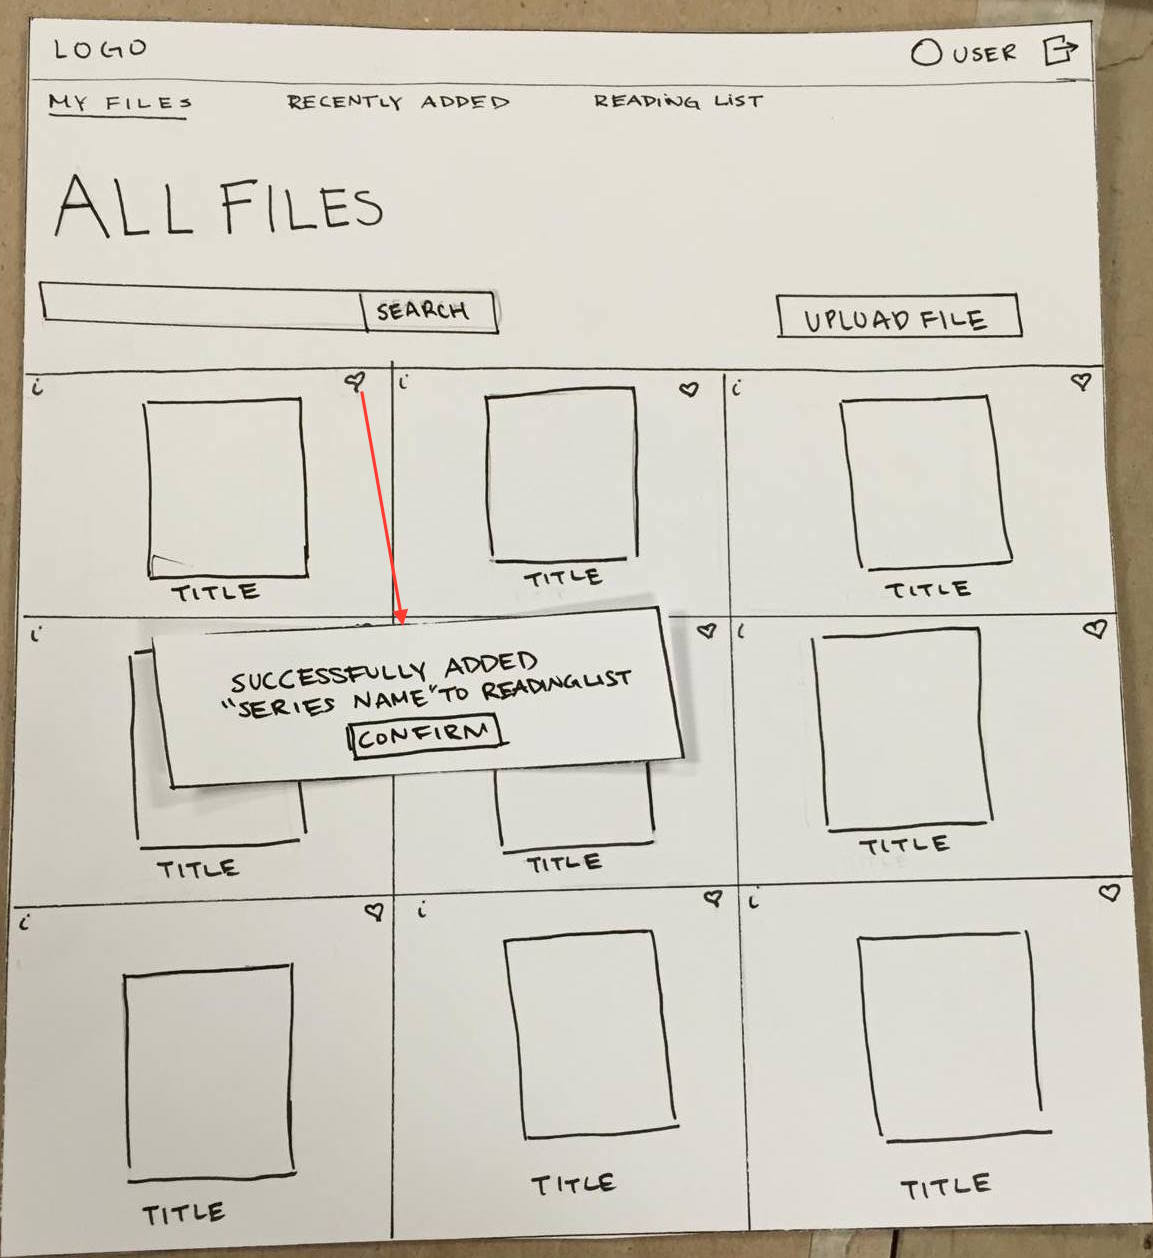 LOGO
USER
MY FILES
RECENTLY ADDED
READING LIST
ALL FILES
SEARCH
UPLOAD FILE
i
i
i
TITLE
TITLE
TITLE
i
i
SUCCESSFULLY ADDED
"SERIES NAME" TO READING LIST
CONFIRM
TITLE
TITLE
TITLE
i
i
i
TITLE
TITLE
TITLE